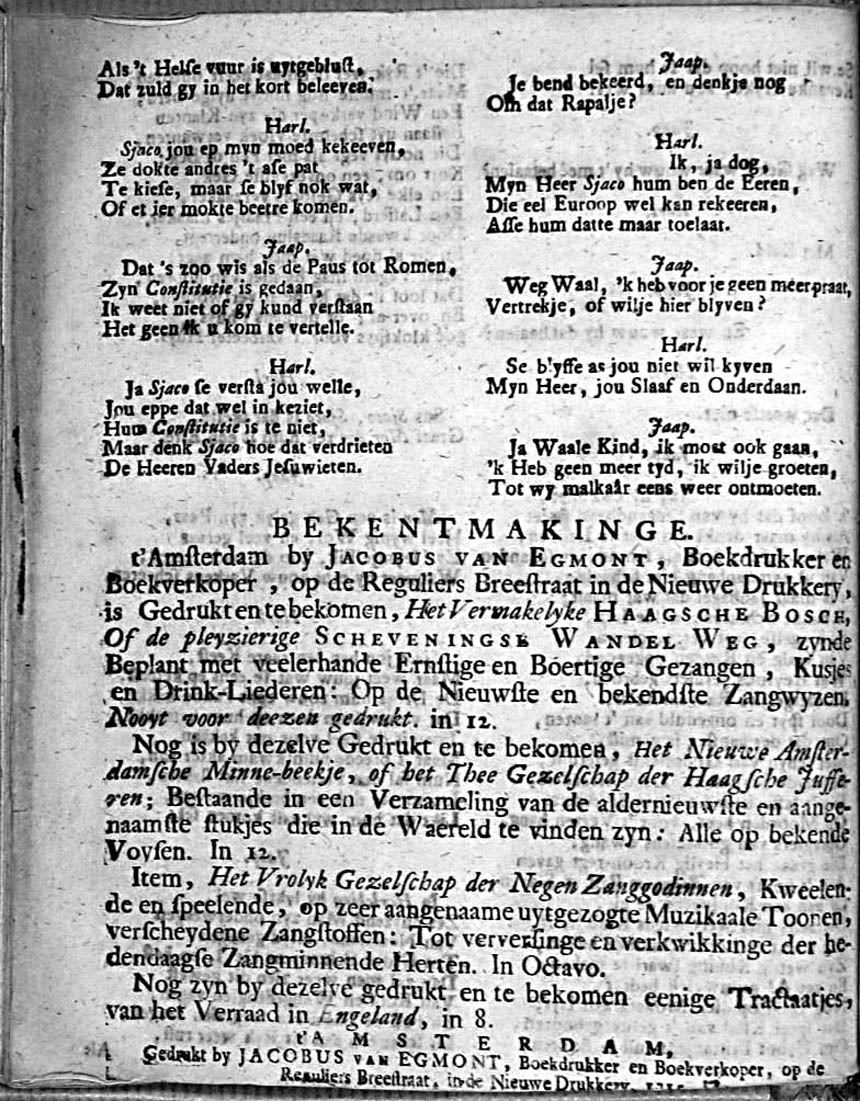 Als 't Helſe vuur is uytgebluſt,
Dat zuld gy in het kort beleeven.
Harl.
Sjaco jou ep myn moed kekeeven,
Ze dokte andres 't aſe pat
Te kieſe, maar ſe blyf nok wat,
Of et ier mokte beetre komen.
Jaap.
Dat 's zoo wis als de Paus tot Romen,
Zyn Conſtitutie is gedaan,
Ik weet niet of gy kund verſtaan
Het geen ik u kom te vertelle.
Harl.
Ja Sjaco ſe verſta jou welle,
Jou eppe dat wel in keziet,
Hum Conſtitutie is te niet,
Maar denk Sjaco hoe dat verdrieten
De Heeren Vaders Jeſuwieten.
Jaap.
Je bend bekeerd, en denkje nog
Om dat Rapalje?
Harl.
Ik, ja dog,
Myn Heer Sjaco hum ben de Eeren,
Die eel Euroop wel kan rekeeren,
Aſſe hum datte maar toelaat.
Jaap.
Weg Waal, 'k heb voor je geen meer praat,
Vertrekje, of wilje hier blyven?
Harl.
Se blyffe as jou niet wil kyven
Myn Heer, jou Slaaf en Onderdaan.
Jaap.
Ja Waale Kind, ik moet ook gaan,
'k Heb geen meer tyd, ik wilje groeten,
Tot wy malkaâr eens weer ontmoeten.
BEKENTMAKINGE.
t'Amſterdam by JACOBUS VAN EGMONT, Boekdrukker en
Boekverkoper, op de Reguliers Breeſtraat in de Nieuwe Drukkery,
is Gedrukt en te bekomen, Het Vermakelyke HAAGSCHE BOSCH,
Of de pleyzierige SCHEVENINGSE WANDEL WEG, zynde
Beplant met veelerhande Ernſtige en Boertige Gezangen, Kusjes
en Drink-Liederen: Op de Nieuwſte en bekendſte Zangwyzen.
Nooyt voor deezen gedrukt. in 12.
Nog is by dezelve Gedrukt en te bekomen, Het Nieuwe Amſter-
damſche Minne-beekje, of het Thee Gezelſchap der Haagſche Juffe-
ren; Beſtaande in een Verzameling van de aldernieuwſte en aange-
naamſte ſtukjes die in de Waereld te vinden zyn: Alle op bekende
Voyſen. In 12.
Item, Het Vrolyk Gezelſchap der Negen Zanggodinnen, Kweelen-
de en ſpeelende, op zeer aangename uytgezogte Muzikaale Toonen,
verſcheydene Zangſtoffen: Tot ververſinge en verkwikkinge der he-
dendaagſe Zangminnende Herten. In Octavo.
Nog zyn by dezelve gedrukt en te bekomen eenige Tractaatjes,
van het Verraad in Engeland, in 8.
t'AMSTERDAM,
Gedrukt by JACOBUS VAN EGMONT, Boekdrukker en Boekverkoper, op de
Reguliers Breeſtraat, in de Nieuwe Drukkery.